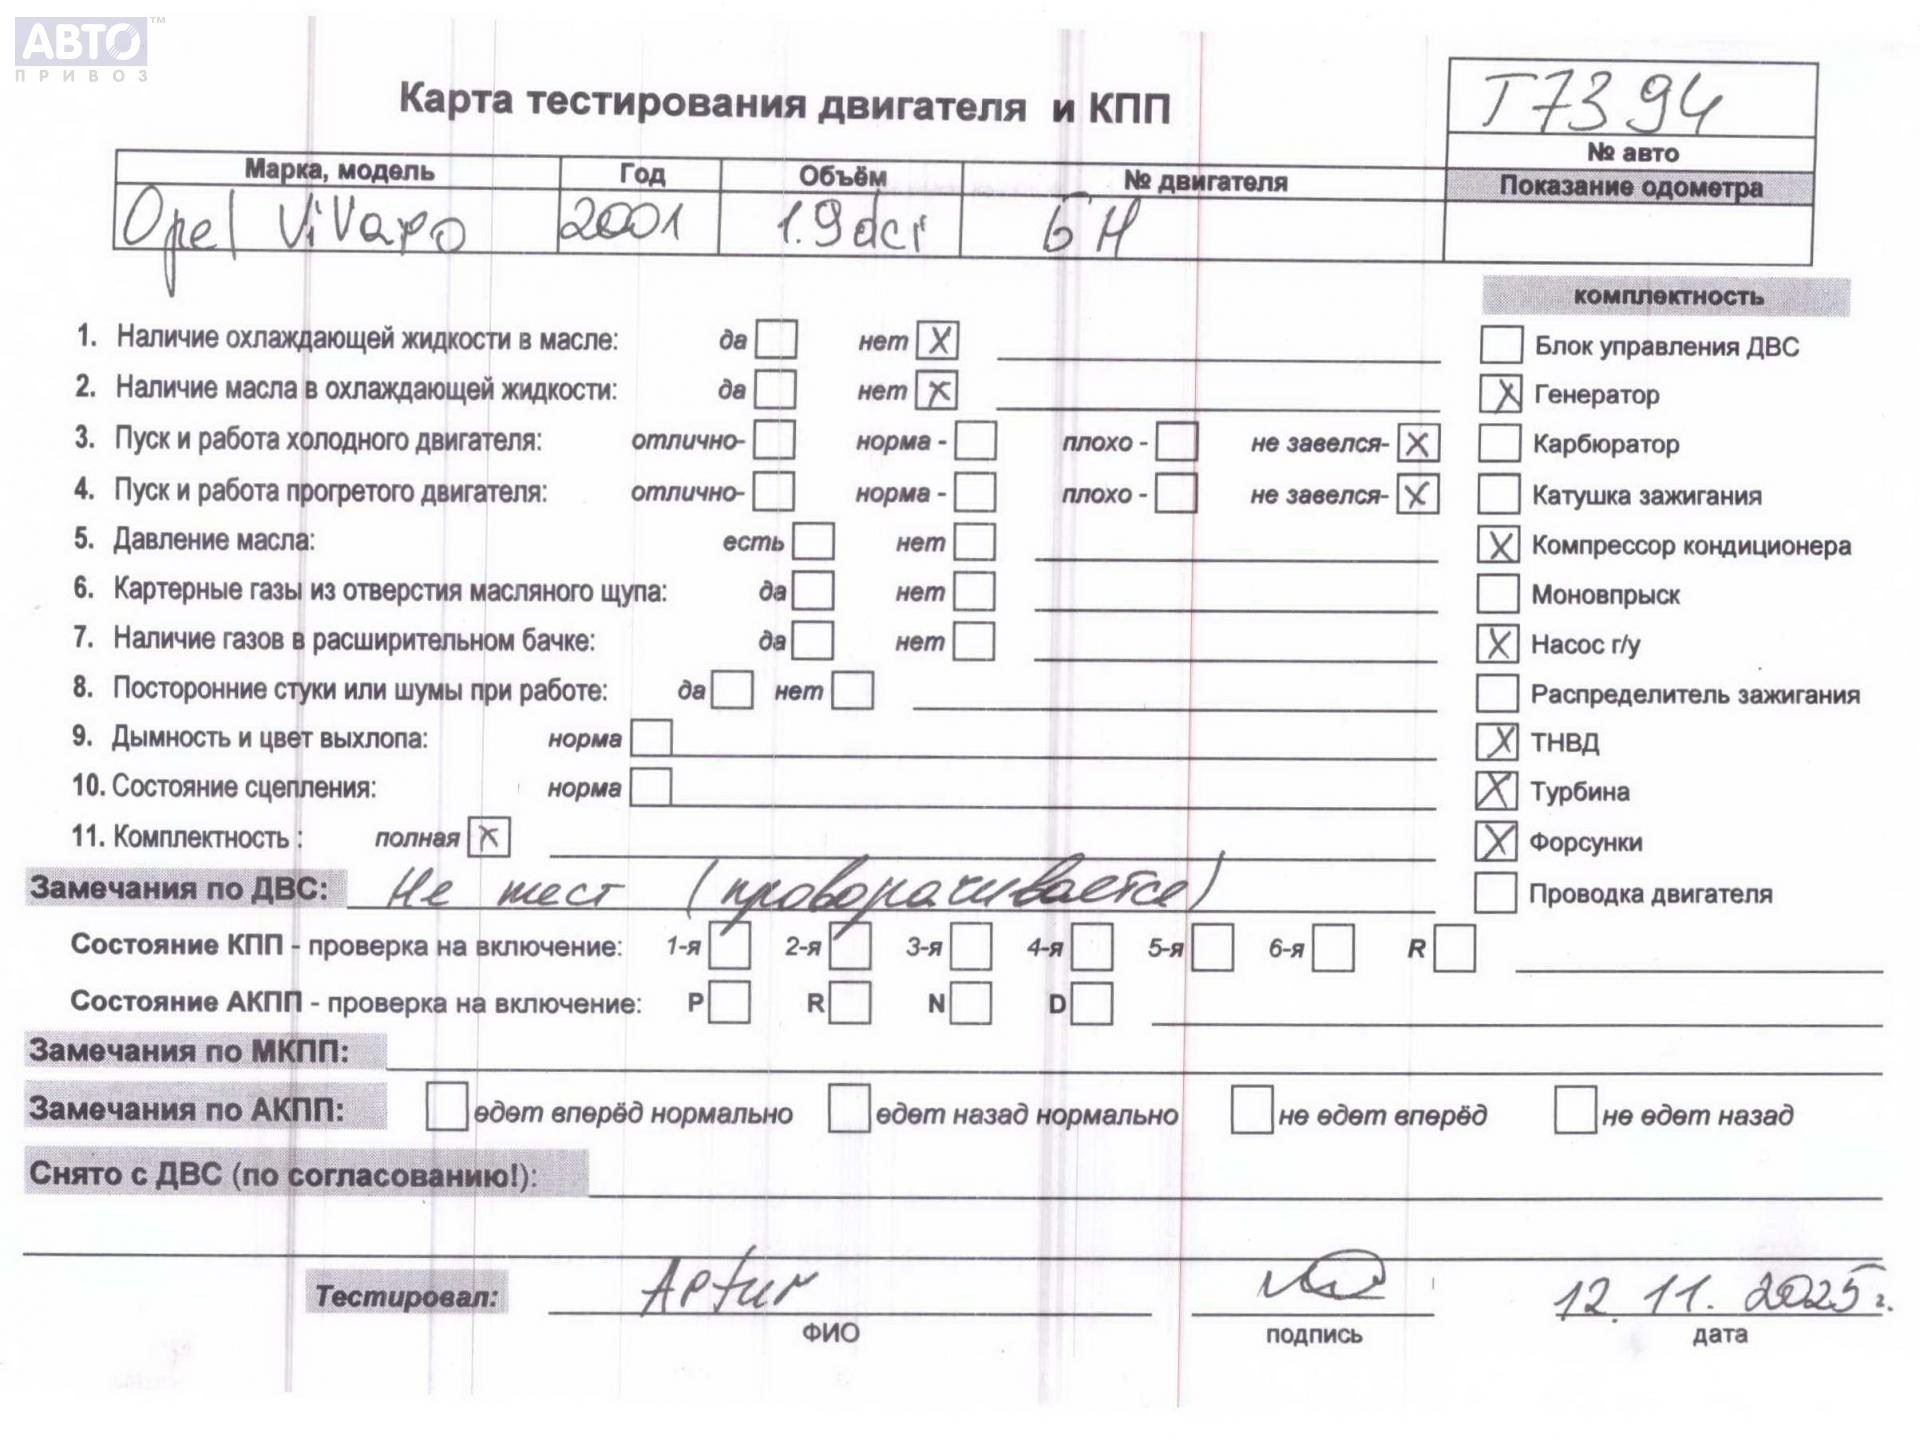 АВТО™
ПРИВОЗ
Карта тестирования двигателя и КПП
T7394
№ авто
Марка, модель Год Объём № двигателя Показание одометра
Opel ViVaro 2001 1.9dci БН
комплектность
1. Наличие охлаждающей жидкости в масле: да нет X Блок управления ДВС
2. Наличие масла в охлаждающей жидкости: да нет X X Генератор
3. Пуск и работа холодного двигателя: отлично- норма - плохо - не завелся- X Карбюратор
4. Пуск и работа прогретого двигателя: отлично- норма - плохо - не завелся- X Катушка зажигания
5. Давление масла: есть нет X Компрессор кондиционера
6. Картерные газы из отверстия масляного щупа: да нет Моновпрыск
7. Наличие газов в расширительном бачке: да нет X Насос г/у
8. Посторонние стуки или шумы при работе: да нет Распределитель зажигания
9. Дымность и цвет выхлопа: норма X ТНВД
10. Состояние сцепления: норма X Турбина
11. Комплектность : полная X X Форсунки
Замечания по ДВС: Не тест (проворачивается) Проводка двигателя
Состояние КПП - проверка на включение: 1-я 2-я 3-я 4-я 5-я 6-я R
Состояние АКПП - проверка на включение: P R N D
Замечания по МКПП:
Замечания по АКПП: едет вперёд нормально едет назад нормально не едет вперёд не едет назад
Снято с ДВС (по согласованию!):
Тестировал: Артur 12.11.2025г.
ФИО подпись дата